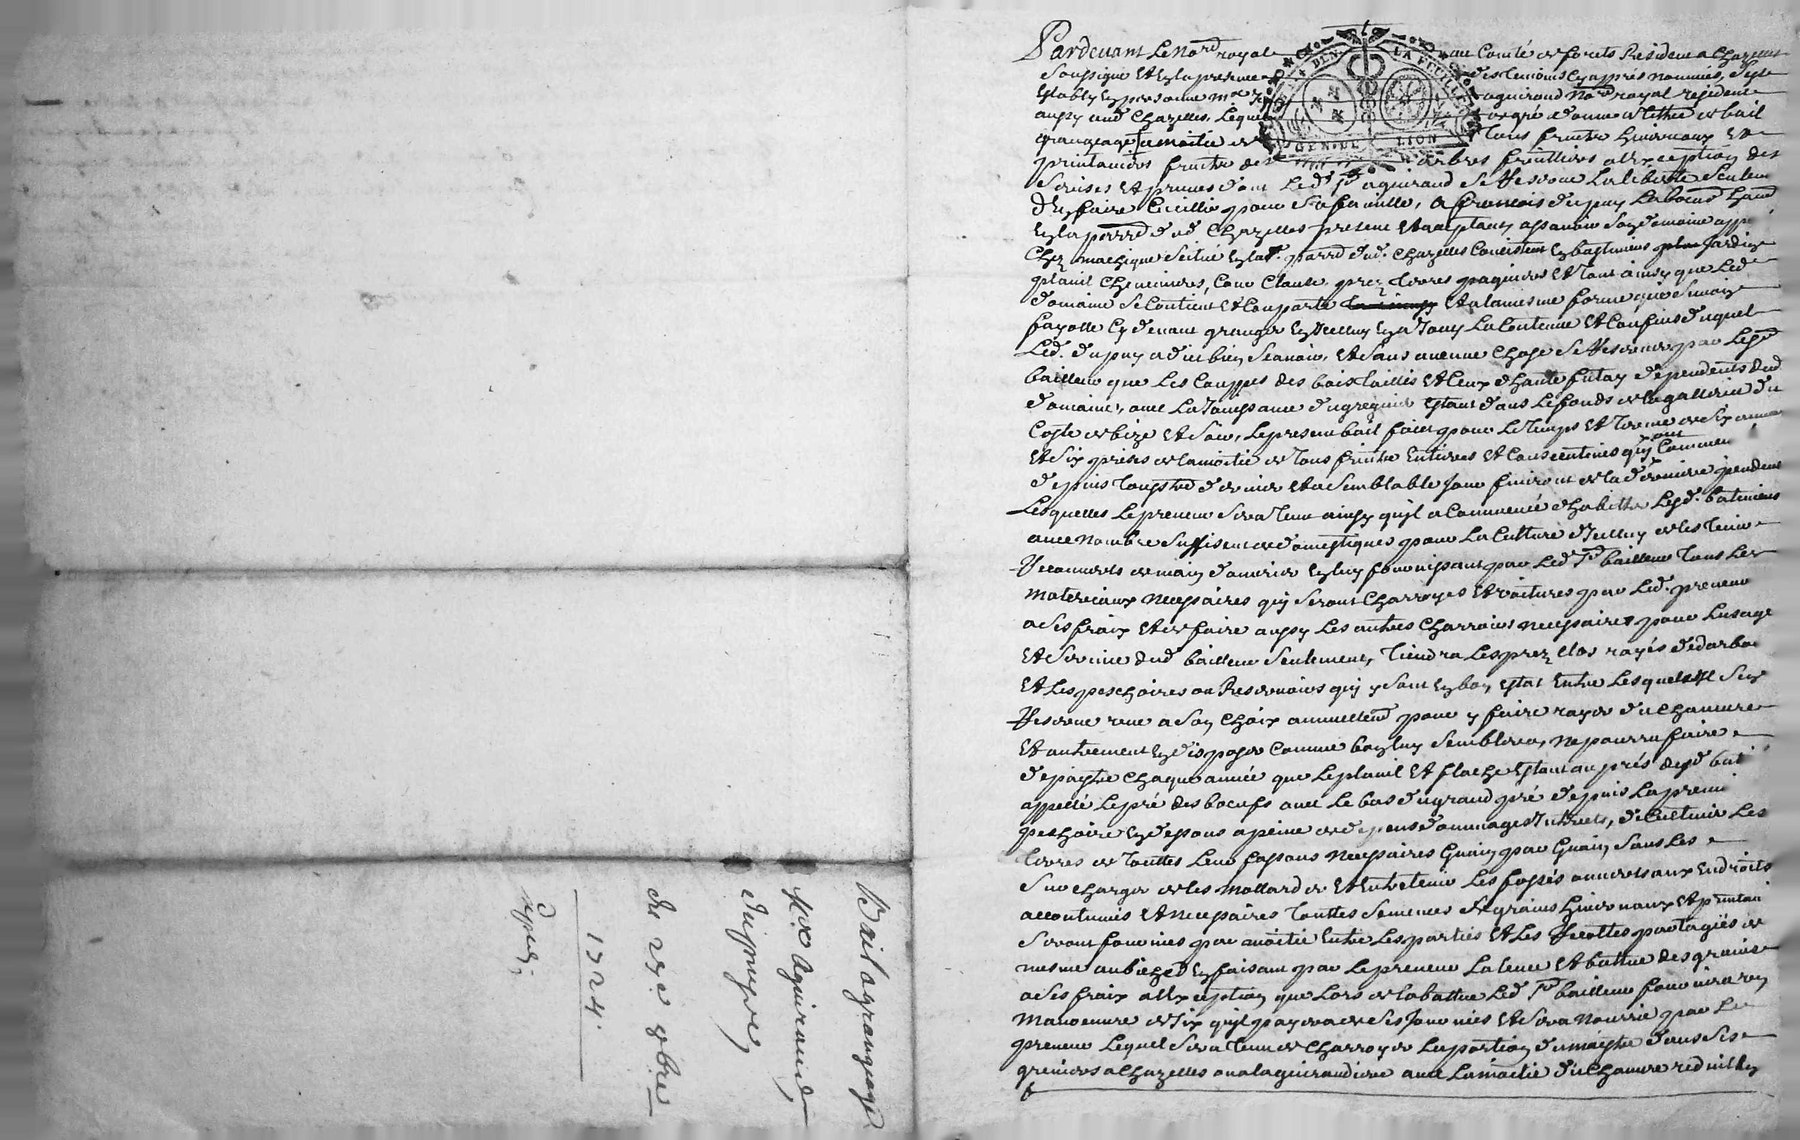 Bail a grangeage
Sr Aguiraud
dupuy
du 25e 8bre
1724.
Pardevant le Nore royal au Comté de forets Residant a Chazelles
soussigné et en la presence des temoins cy apprés nommés, s'est
estably en personne Me aguiraud Nore royal residant
aussy aud Chazelles, Lequel de gré donne a tiltre de bail
grangeage a moitié de tous fruits hivernaux et
printaniers fruits des arbres fruittiers a l'exception des
serises et prunes dont led. Sr aguiraud se reserve la liberté seulem
d'en faire cueillir pour sa famille, a francois dupuy laboureur
en la parre dud Chazelles present et acceptant, assavoir son domaine appé
Chez machique scitué en lad. parre dud. Chazelles consistant en bastimens jardin
plavil cheneviers, cour close prez terres paquiers et tout ainsy que led
domaine se contient et comporte et a la mesme forme que Simon
fayolle cy devant granger en icelluy en a jouy la contenue et confins duquel
Led. dupuy a dit bien scavoir, et sans aucune chose se reserver par led
bailleur que les couppes des bois taillis et ceux d'haute futay dependents dud
domaine, avec la jouissance du grenier estant dans le fonds de la gallerie du
Costé de bize et soir, le present bail fait pour le temps et terme de six années
et six prises de la moitié de tous fruits entieres et consecutives qui ont commen
depuis toussts dernier et a semblable jour finiront de la derniere pendant
Lesquelles le preneur sera tenu ainsy qu'il a commencé d'habiter lesd. batiments
avec nombre suffisent de domestiques pour la culture d'icelluy de les tenir
recouverts de main d'ouvrier en luy fournissant par led Sr bailleur tous les
materiaux necessaires qui seront charroyés et voiturés par led. preneur
a ses fraix et de faire aussy les autres charrois necessaires pour l'usage
et service dud bailleur seulement, tiendra les prez clos rayés d'edarbon
et les peschoires ou reservoirs qui y sont en bon estat entre lesquels il sen
reserve une a son choix annuellemt pour y faire rayer du chanvre
et autrement en disposer comme bon luy semblera, ne pourra faire
depaistre chaque année que le plavil et flache estant auprés desd bati
appellé le pré des boeufs avec le bas du grand pré depuis la premi
peschoire en dessous a peine de depens dommages interets, de cultiver les
terres de touttes leur façons necessaires Guain par Guain sans les
surcharger de les mollarder et entretenir les fossés ouverts aux endroits
accoutumés et necessaires touttes semences de grains hivernaux et printani
seront fournies par moitié entre les parties et les recoltes partagées de
mesme au bichet en faisant par le preneur la levée et battue des grains
a ses fraix a l'exception que lors de la battue led Sr bailleur fournira un
manoeuvre de six qu'il payera de ses journées et sera nourrie par le
preneur lequel sera tenu de charroyer la portion du maistre dans ses
greniers a Chazelles ou a l'aguiraudiere avec la moitié du chanvre